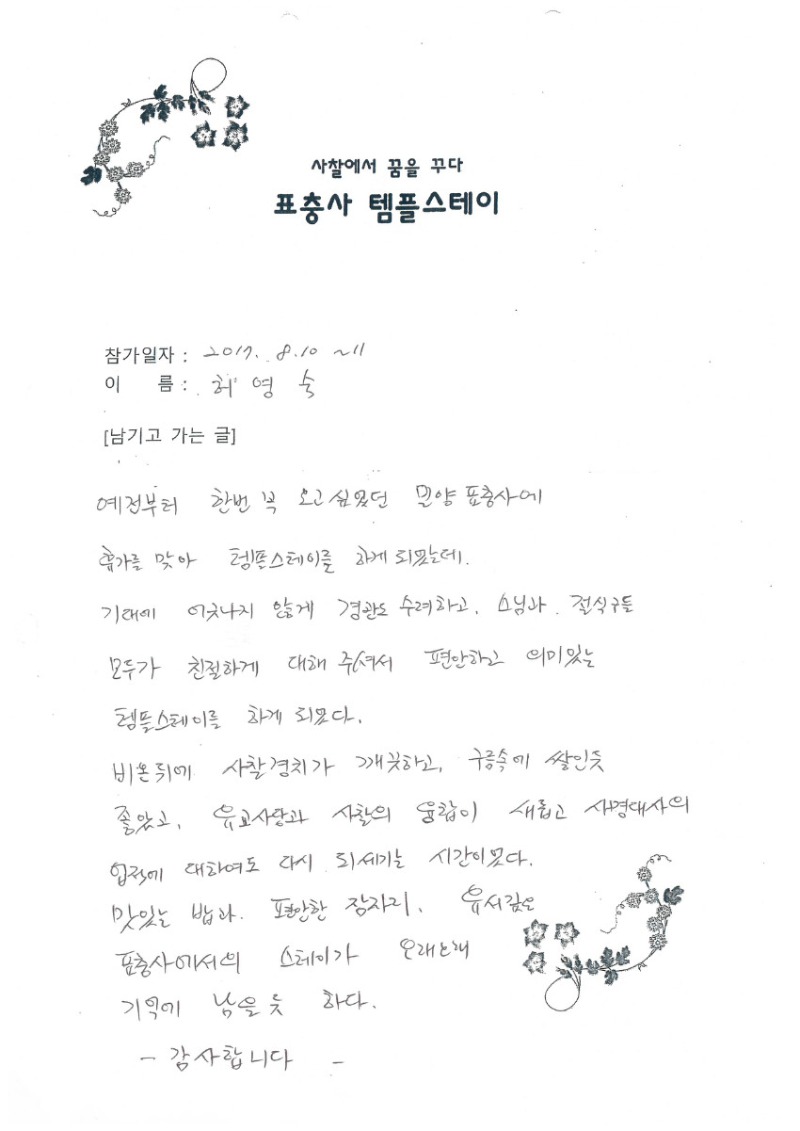 사찰에서 꿈을 꾸다
표충사 템플스테이
참가일자 : 2017. 8.10 ~11
이 름 : 허 영 숙
[남기고 가는 글]
예전부터 한번 꼭 오고 싶었던 밀양 표충사에
휴가를 맞아 템플스테이를 하게 되었는데.
기대에 어긋나지 않게 경관도 수려하고, 스님과 절식구들
모두가 친절하게 대해 주셔서 편안하고 의미있는
템플스테이를 하게 되었다.
비온뒤에 사찰경치가 깨끗하고, 구름속에 쌀인듯
좋았고, 유교사당과 사찰의 융합이 새롭고 사명대사의
업적에 대하여도 다시 되세기는 시간이었다.
맛있는 밥과. 편안한 잠자리, 유서깊은
표충사에서의 스테이가 오래오래
기억에 남을 듯 하다.
- 감사합니다 -